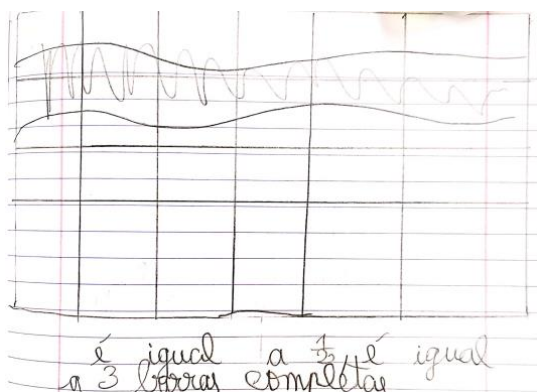 é igual a 1/2 é igual
a 3 barras completas